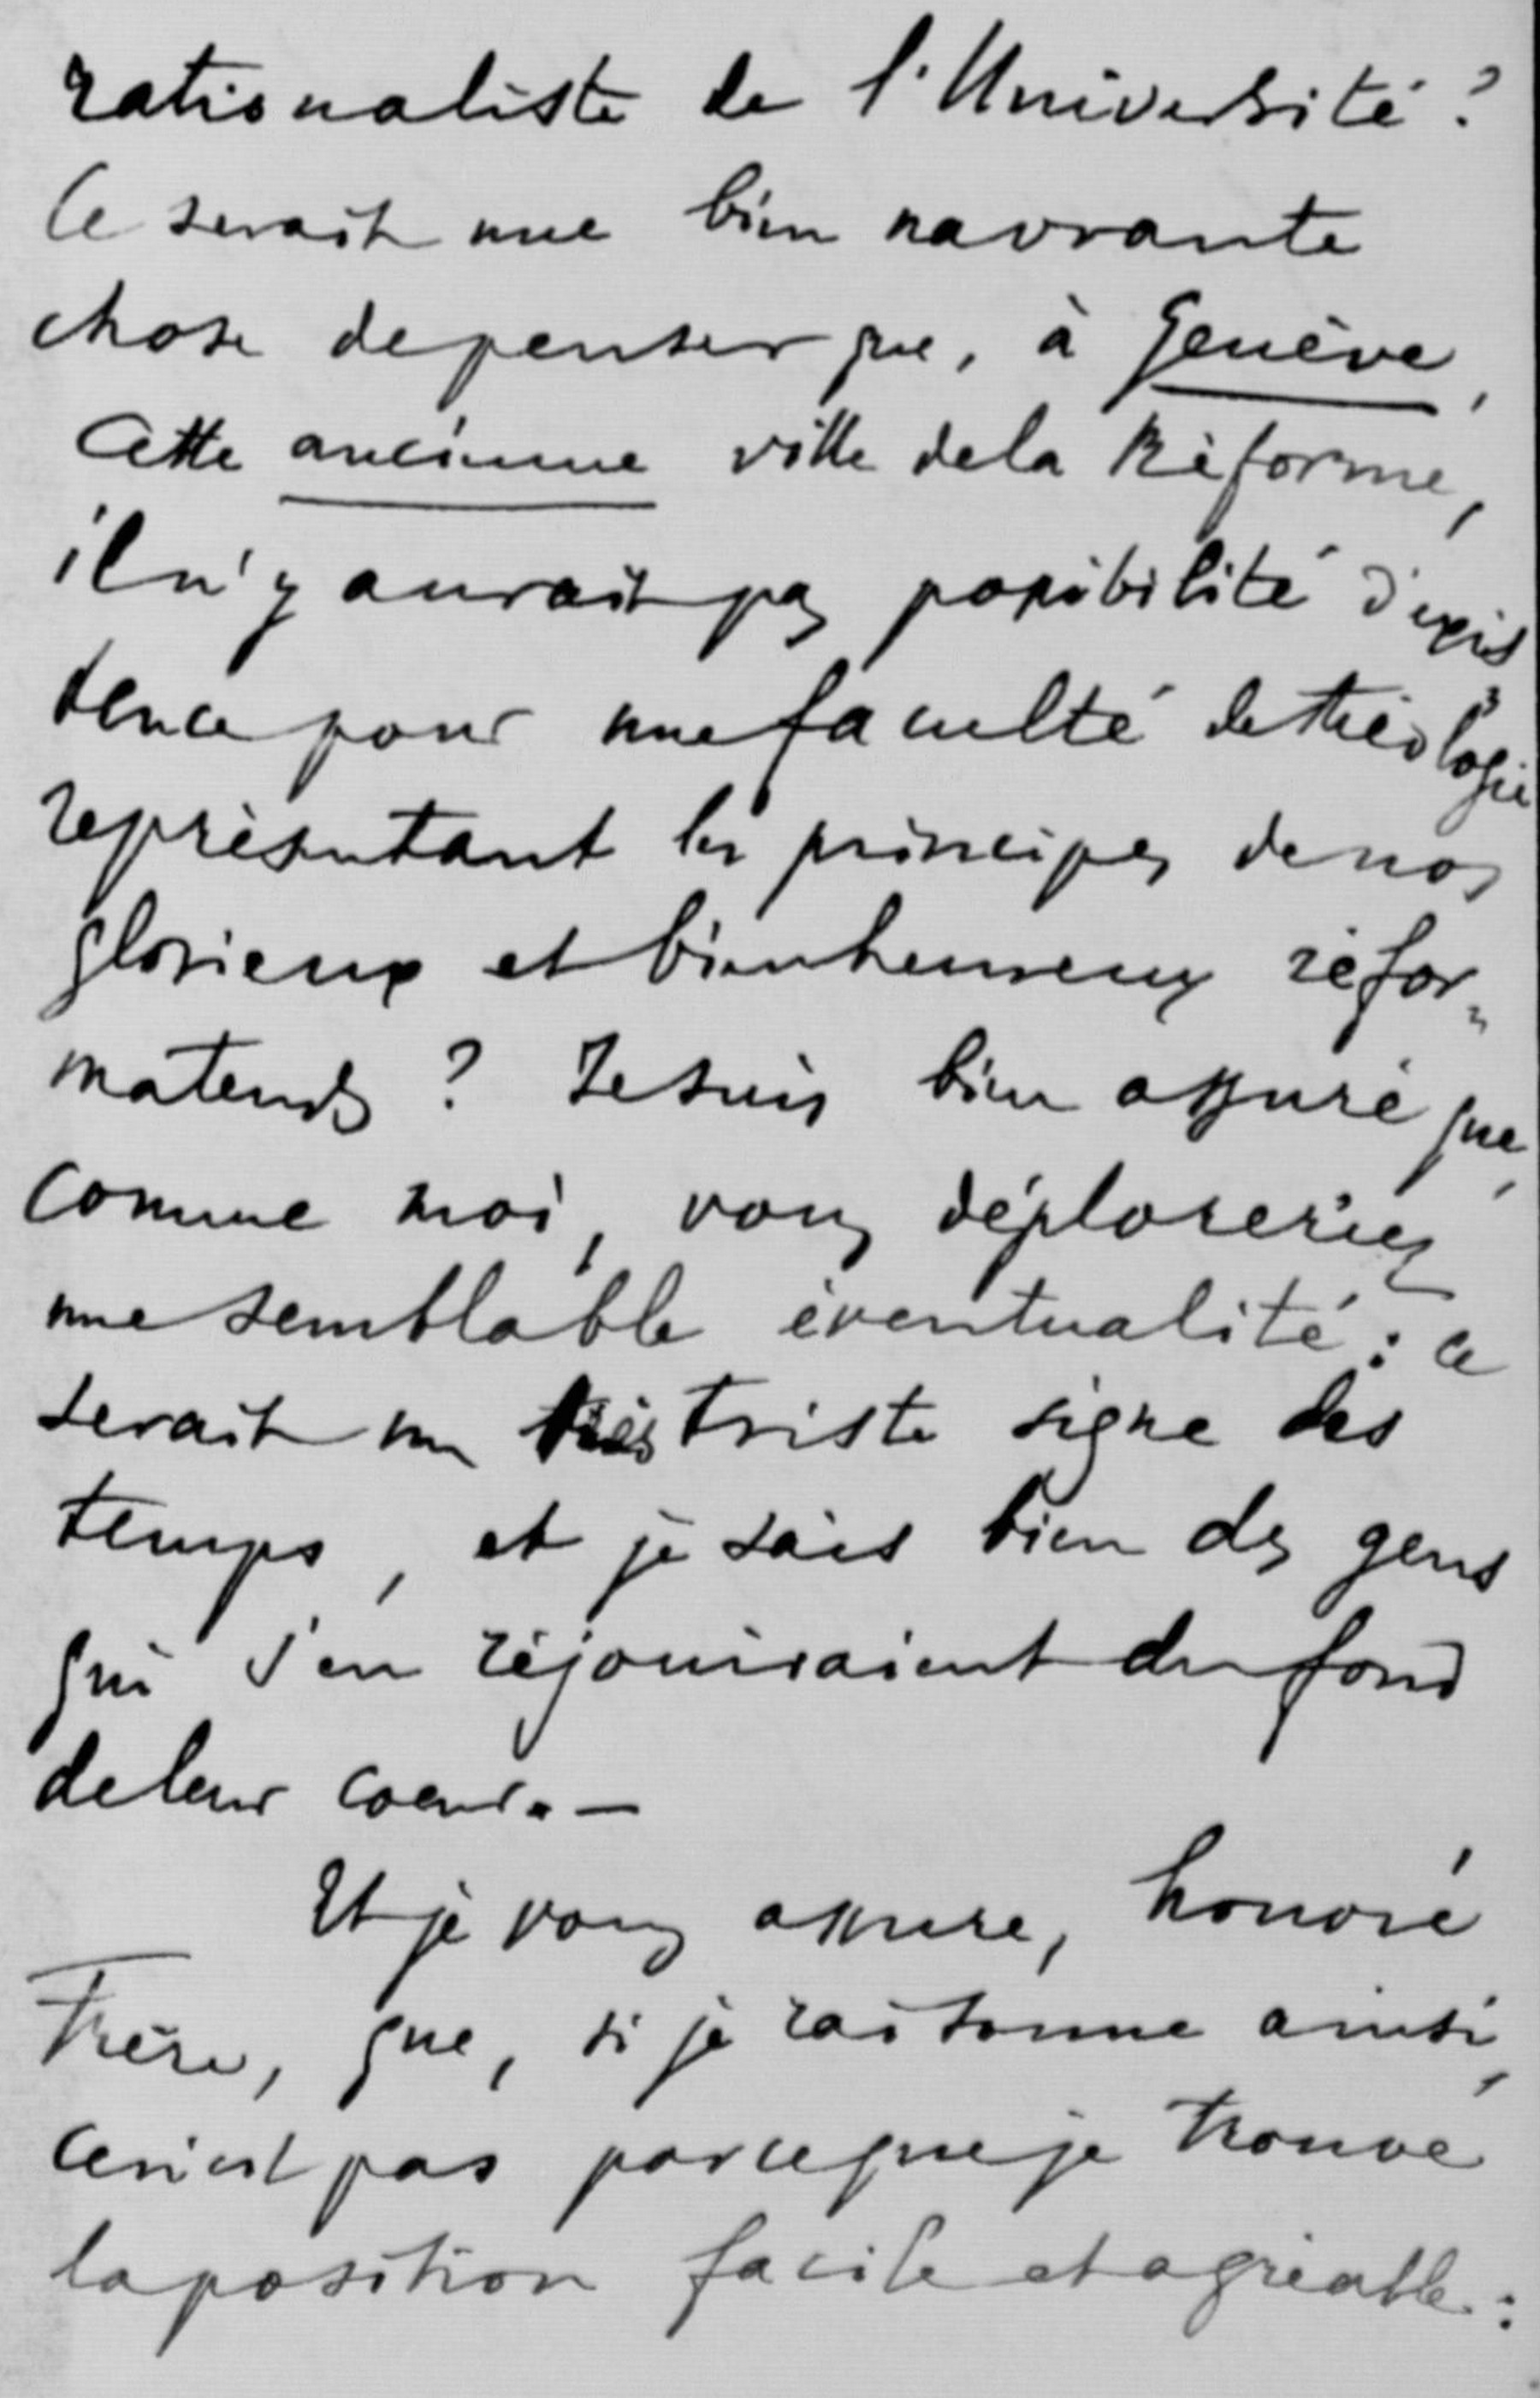 rationaliste de l'Université ?
Ce serait une bien navrante
chose de penser que, à Genève,
cette ancienne ville de la Réforme,
il n'y aurait pas possibilité d'exis
tence pour une faculté de théologie
représentant les principes de nos
glorieux et bienheureux réfor-
mateurs ? Je suis bien assuré que,
comme moi, vous déploreriez
une semblable éventualité : ce
serait un très triste signe des
temps, et je sais bien des gens
qui s'en réjouiraient du fond
de leur coeur. —
Et je vous assure, honoré
Frère, que, si je raisonne ainsi,
ce n'est pas parce que je trouve
la position facile et agréable :